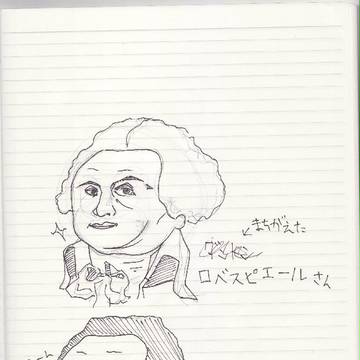 まちがえた
ロベスピエールさん